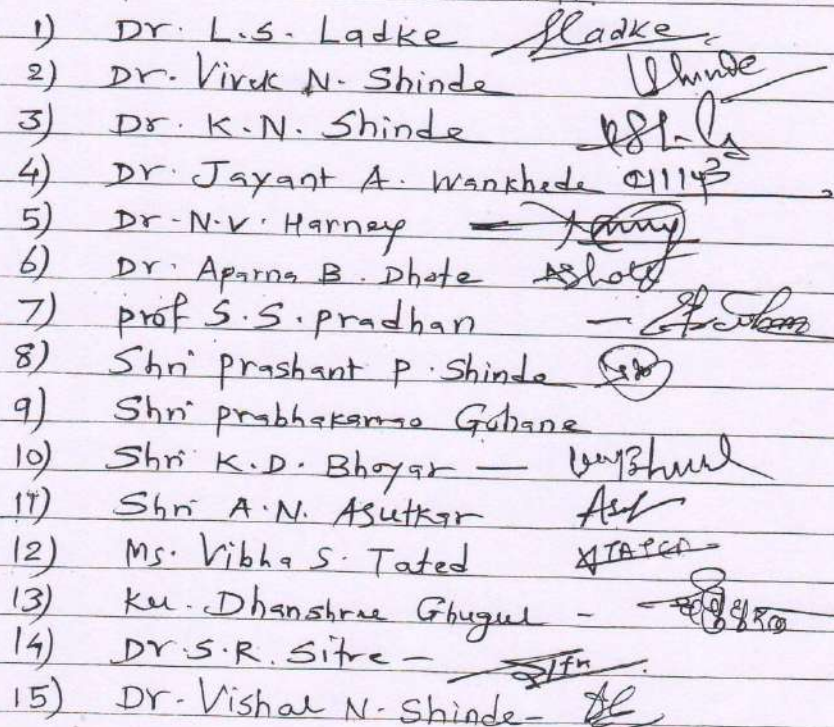 1) Dr. L.S. Ladke Sladke
2) Dr. Vivek N. Shinde Vshinde
3) Dr. K.N. Shinde
4) Dr. Jayant A. Wankhede
5) Dr. N.V. Harney
6) Dr. Aparna B. Dhote
7) prof S.S. pradhan
8) Shri prashant P. Shinde
9) Shri prabhakarrao Gohane
10) Shri K.D. Bhoyar —
11) Shri A.N. Asutkar
12) Ms. Vibha S. Tated STATED
13) Ku. Dhanshree Ghugul -
14) Dr. S.R. Sitre -
15) Dr. Vishal N. Shinde -